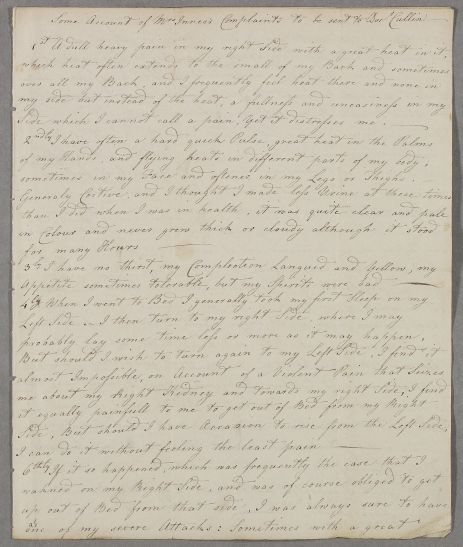 Some Account of Mrs Innes's Complaints to be sent to Docr Cullen
1st A dull heavy pain in my right Side with a great heat in it,
which heat often extends to the small of my Back and sometimes
over all my Back, and I frequently feel heat there and none in
my side but instead of the heat, a fullness and uneasiness in my
Side which I cannot call a pain, yet it distresses me.
2ndly I have often a hard quick Pulse, great heat in the Palms
of my Hands, and flying heats in different parts of my body,
sometimes in my Face and oftener in my Legs or Thighs.
Generaly Costive, and I thought I made less Urine at these times
than I did when I was in health, it was quite clear and pale
in Colour and never grew thick or cloudy although it stood
for many Hours
3d I have no thirst, my Complection Languid and Yellow, my
Appetite sometimes tolerable, but my Spirits were bad
4th When I went to Bed I generally took my first Sleep on my
Left Side. I then turn to my right Side, where I may
probably lay some time less or more as it may happen,
But should I wish to turn again to my Left Side, I find it
almost Impossible, on Account of a Violent Pain that Seizes
me about my Right Kidney and towards my right Side, I find
it equally painfull to me to get out of Bed from my Right
Side, But should I have Occasion to rise from the Left Side,
I can do it without feeling the least pain
6thly If it so happened, which was frequently the case that I
on my Right Side, and was of course obliged to get
up out of Bed from that side, I was always sure to have
one of my severe Attacks: Sometimes with a great